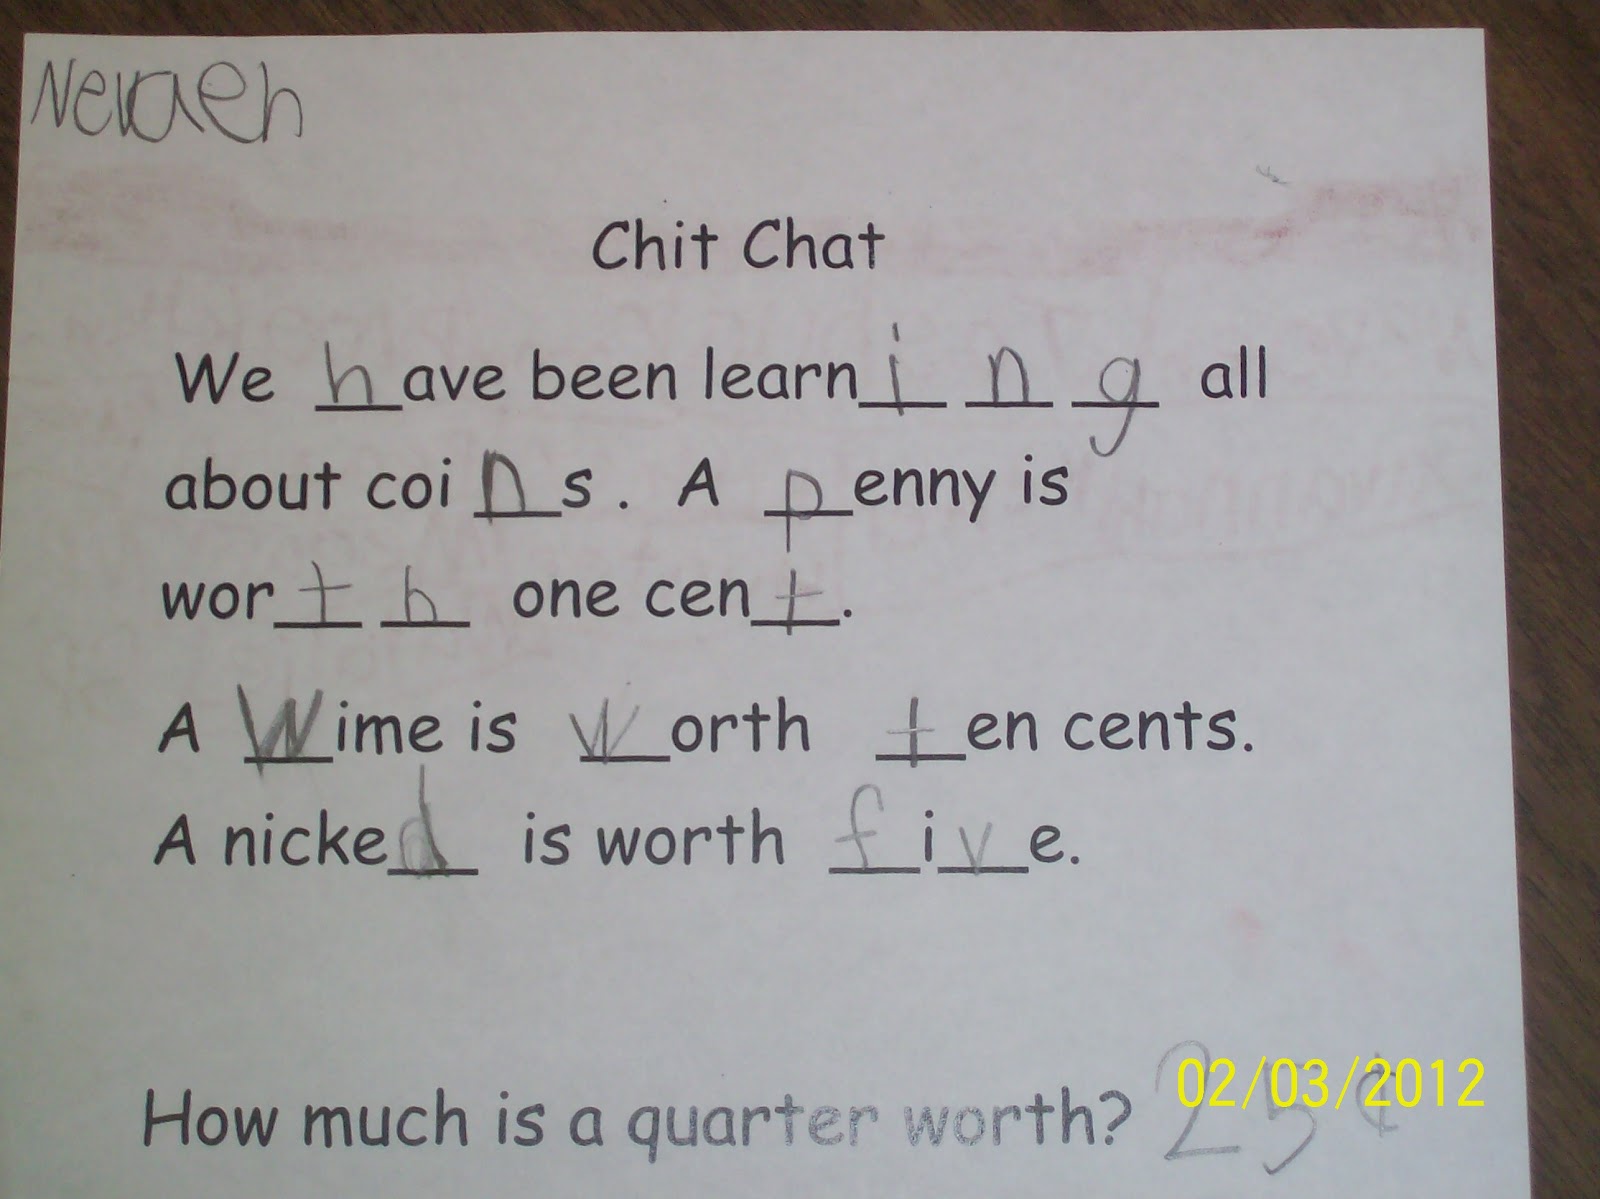 Nevaeh
Chit Chat
We have been learning all
about coins. A penny is
worth one cent.
A Wime is worth ten cents.
A nicked is worth five.
How much is a quarter worth? 25¢
02/03/2012